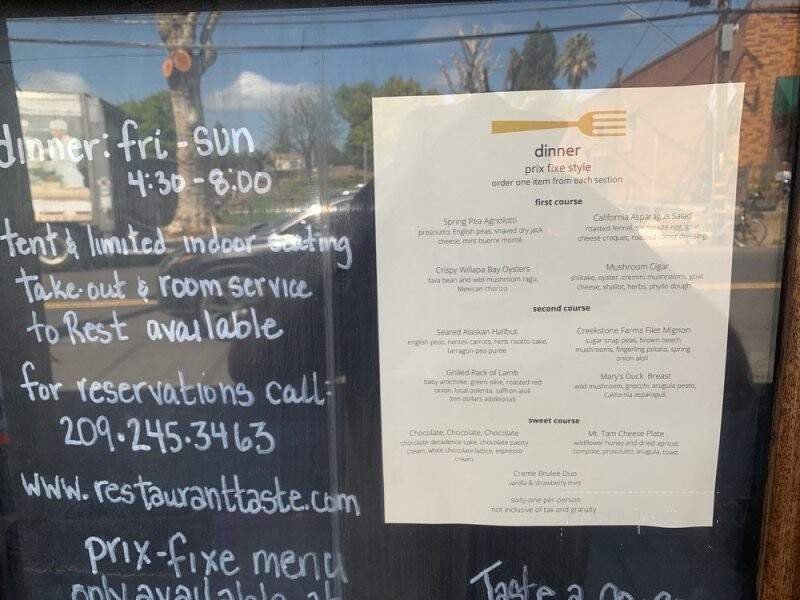 dinner: fri-sun
4:30-8:00
tent & limited indoor seating
take-out & room service
to Rest available
for reservations call:
209.245.3463
www.restauranttaste.com
prix-fixe menu
only available at
dinner
prix fixe style
order one item from each section
first course
Spring Pea Agnolotti
prosciutto, English peas, shaved dry jack
cheese, mint buerre monté
California Asparagus Salad
roasted fennel, six minute egg, goat
cheese croquet, roasted carrot dressing
Crispy Willapa Bay Oysters
fava bean and wild mushroom ragu,
Mexican chorizo
Mushroom Cigar
shiitake, oyster, cremini mushrooms, goat
cheese, shallot, herbs, phyllo dough
second course
Seared Alaskan Halibut
english peas, nantes carrots, herb risotto cake,
tarragon-pea puree
Creekstone Farms Filet Mignon
sugar snap peas, brown beech
mushrooms, fingerling potato, spring
onion aioli
Grilled Rack of Lamb
baby artichoke, green olive, roasted red
onion, local polenta, saffron aioli
(ten dollars additional)
Mary's Duck Breast
wild mushroom, gnocchi, arugula pesto,
California asparagus
sweet course
Chocolate, Chocolate, Chocolate
chocolate decadence cake, chocolate pastry
cream, white chocolate lattice, espresso
cream
Mt. Tam Cheese Plate
wildflower honey and dried apricot
compote, prosciutto, arugula, toast
Creme Brulee Duo
vanilla & strawberry mint
sixty-one per person
not inclusive of tax and gratuity
Taste a